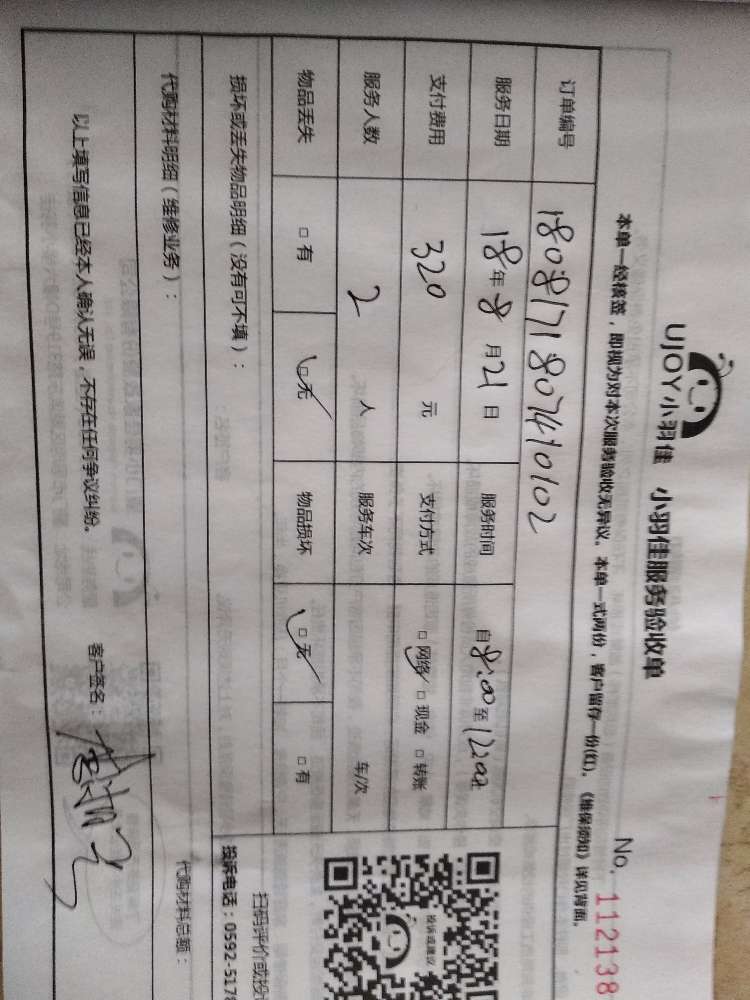 UJOY小羽佳 小羽佳服务验收单
No. 112138
本单一经核签，即视为对本次服务验收无异议。本单一式两份，客户留存一份(红)。《维保须知》详见背面。
订单编号 1808171807410102
服务日期 18年8月21日 服务时间 自8:00至12:00
支付费用 320元 支付方式 □网络 □现金 □转账
服务人数 2人 服务车次 车/次
物品丢失 □有 □无 物品损坏 □无 □有
投诉或建议
扫码评价或投
投诉电话：0592-5178
损坏或丢失物品明细（没有可不填）：
代购材料明细（维修业务）： 代购材料总额：
以上填写信息已经本人确认无误，不存在任何争议纠纷。 客户签名：